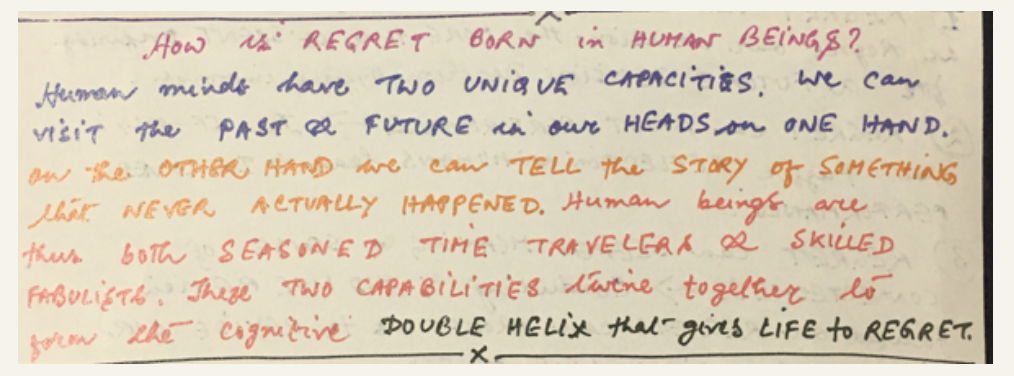 How is REGRET BORN in HUMAN BEINGS?
Human minds have TWO UNIQUE CAPACITIES. We can
VISIT the PAST & FUTURE in our HEADS on ONE HAND.
on the OTHER HAND we can TELL the STORY of SOMETHING
that NEVER ACTUALLY HAPPENED. Human beings are
thus both SEASONED TIME TRAVELERS & SKILLED
FABULISTS. These TWO CAPABILITIES twine together to
form the cognitive DOUBLE HELIX that gives LIFE to REGRET.